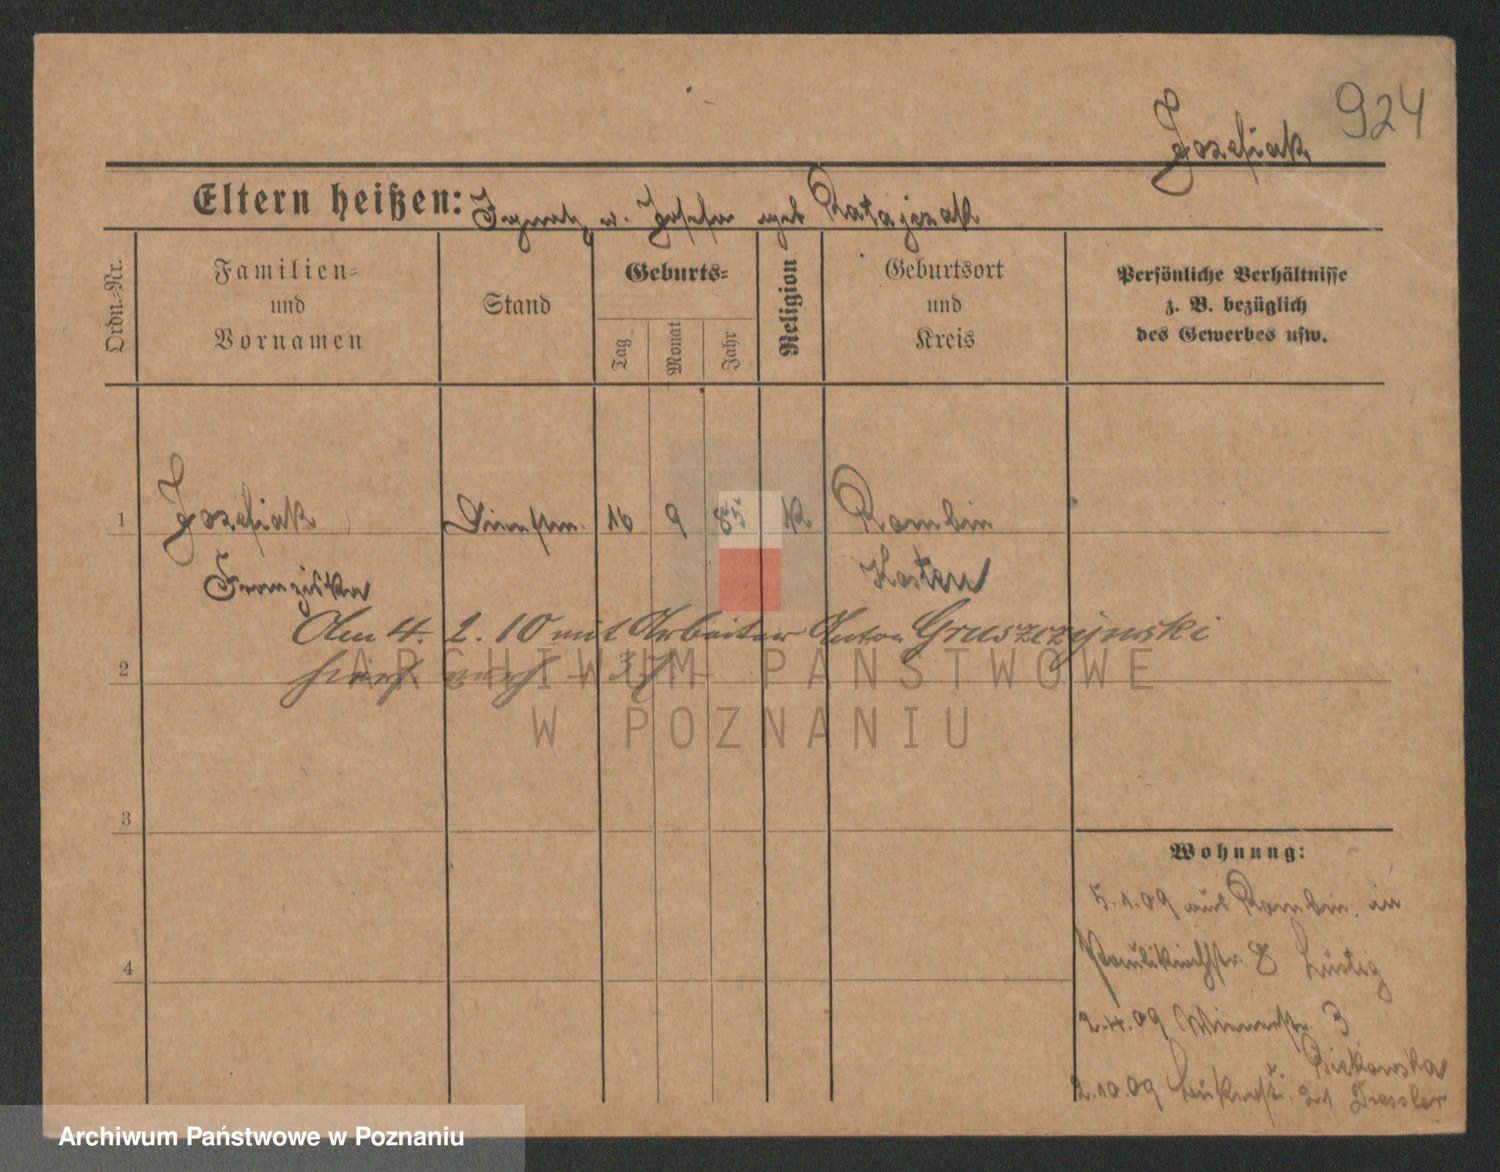 924
Jozefiak
Eltern heißen: Ignatz u. Josefa geb Ratajczak
Ordn.-Nr.
Familien-
und
Vornamen
Stand
Geburts-
Tag
Monat
Jahr
Religion
Geburtsort
und
Kreis
Persönliche Verhältnisse
z. B. bezüglich
des Gewerbes usw.
1 Jozefiak Dienstm. 16 9 85 k Rombin
Franziska Kosten
Am 4. 2. 10 mit Arbeiter Anton Gruszczynski
hier verh - 37 -
2
3
4
Wohnung:
5.1.09 aus Rombin in
Paulikirchstr. 8 Lustig
2.4.09 Wienerstr. 3
Biekowska
2.10.09 21 Dressler
ARCHIWUM PAŃSTWOWE
W POZNANIU
Archiwum Państwowe w Poznaniu